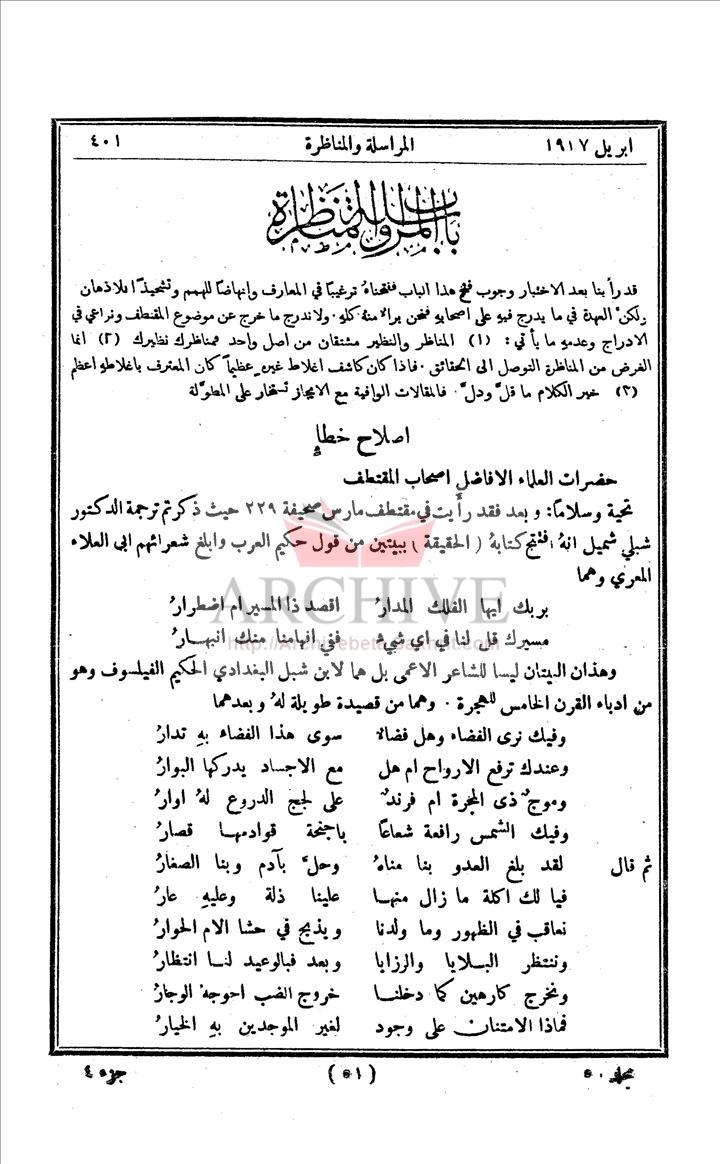 ابريل ١٩١٧ المراسلة والمناظرة ٤٠١
باب المراسلة والمناظرة
قد رأينا بعد الاختبار وجوب فتح هذا الباب ففتحناهُ ترغيبًا في المعارف وإنهاضًا للهمم وتشحيذًا للاذهان
ولكنَّ العهدة في ما يدرج فيهِ على اصحابهِ فنحن برالا منهُ كلهِ ٠ ولا ندرج ما خرج عن موضوع المقتطف ونراعي في
الادراج وعدمهِ ما يأتي : (١) المناظر والنظير مشتقان من اصل واحد فمناظرك نظيرك (٢) انما
الغرض من المناظرة التوصل الى الحقائق ٠ فاذا كان كاشف اغلاط غيرهِ عظيمًا كان المعترف باغلاطهِ اعظم
(٣) خير الكلام ما قلَّ ودلَّ ٠ فالمقالات الوافية مع الايجاز تستخار على المطوَّلة
اصلاح خطإٍ
حضرات العلماء الافاضل اصحاب المقتطف
تحية وسلامًا: وبعد فقد رأيت في مقتطف مارس صحيفة ٢٢٩ حيث ذكرتم ترجمة الدكتور
شبلي شميل انهُ افتتح كتابهُ ( الحقيقة ) ببيتين من قول حكيم العرب وابلغ شعرائهم ابي العلاء
المعري وهما
بربك ايها الفلك المدارُ اقصد ذا المسير ام اضطرارُ
مسيرك قل لنا في اي شيءٍ ففي افهامنا منك انبهارُ
وهذان البيتان ليسا للشاعر الاعمى بل هما لابن شبل البغدادي الحكيم الفيلسوف وهو
من ادباء القرن الخامس للهجرة ٠ وهما من قصيدة طويلة لهُ وبعدهما
وفيك نرى الفضاء وهل فضالا سوى هذا الفضاء بهِ تدارُ
وعندك ترفع الارواح ام هل مع الاجساد يدركها البوارُ
وموجٌ ذي المجرة ام فرندٌ على لجج الدروع لهُ اوارُ
وفيك الشمس رافعة شعاعًا باجنحة قوادمها قصارُ
ثم قال لقد بلغ العدو بنا مناهُ وحلَّ بآدم وبنا الصغارُ
فيا لك اكلة ما زال منها علينا ذلة وعليهِ عارُ
نعاقب في الظهور وما ولدنا ويذبح في حشا الام الحوارُ
وننتظر البلايا والرزايا وبعد فبالوعيد لنا انتظارُ
ونخرج كارهين كما دخلنا خروج الضب احوجهُ الوجارُ
فماذا الامتنان على وجود لغير الموجدين بهِ الخيارُ
مجلد ٥٠ (٥١) جزء ٤
ARCHIVE